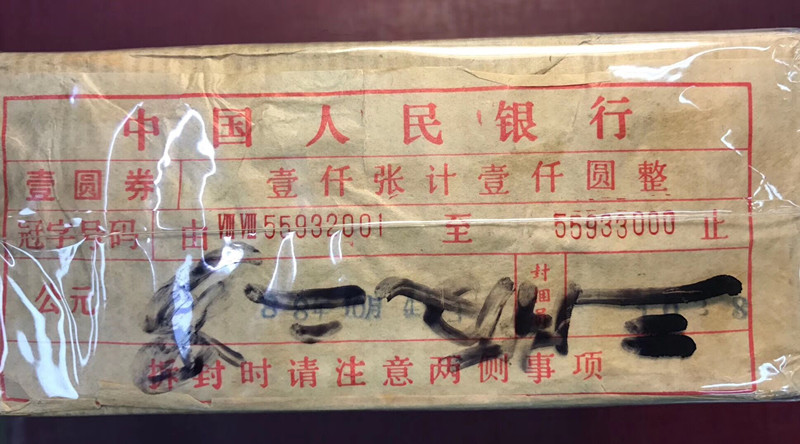 中国人民银行
壹圆券 壹仟张计壹仟圆整
冠字号码 由ⅧⅧ55932001 至 55933000止
公元 88年10月4日 封捆员
拆封时请注意两侧事项